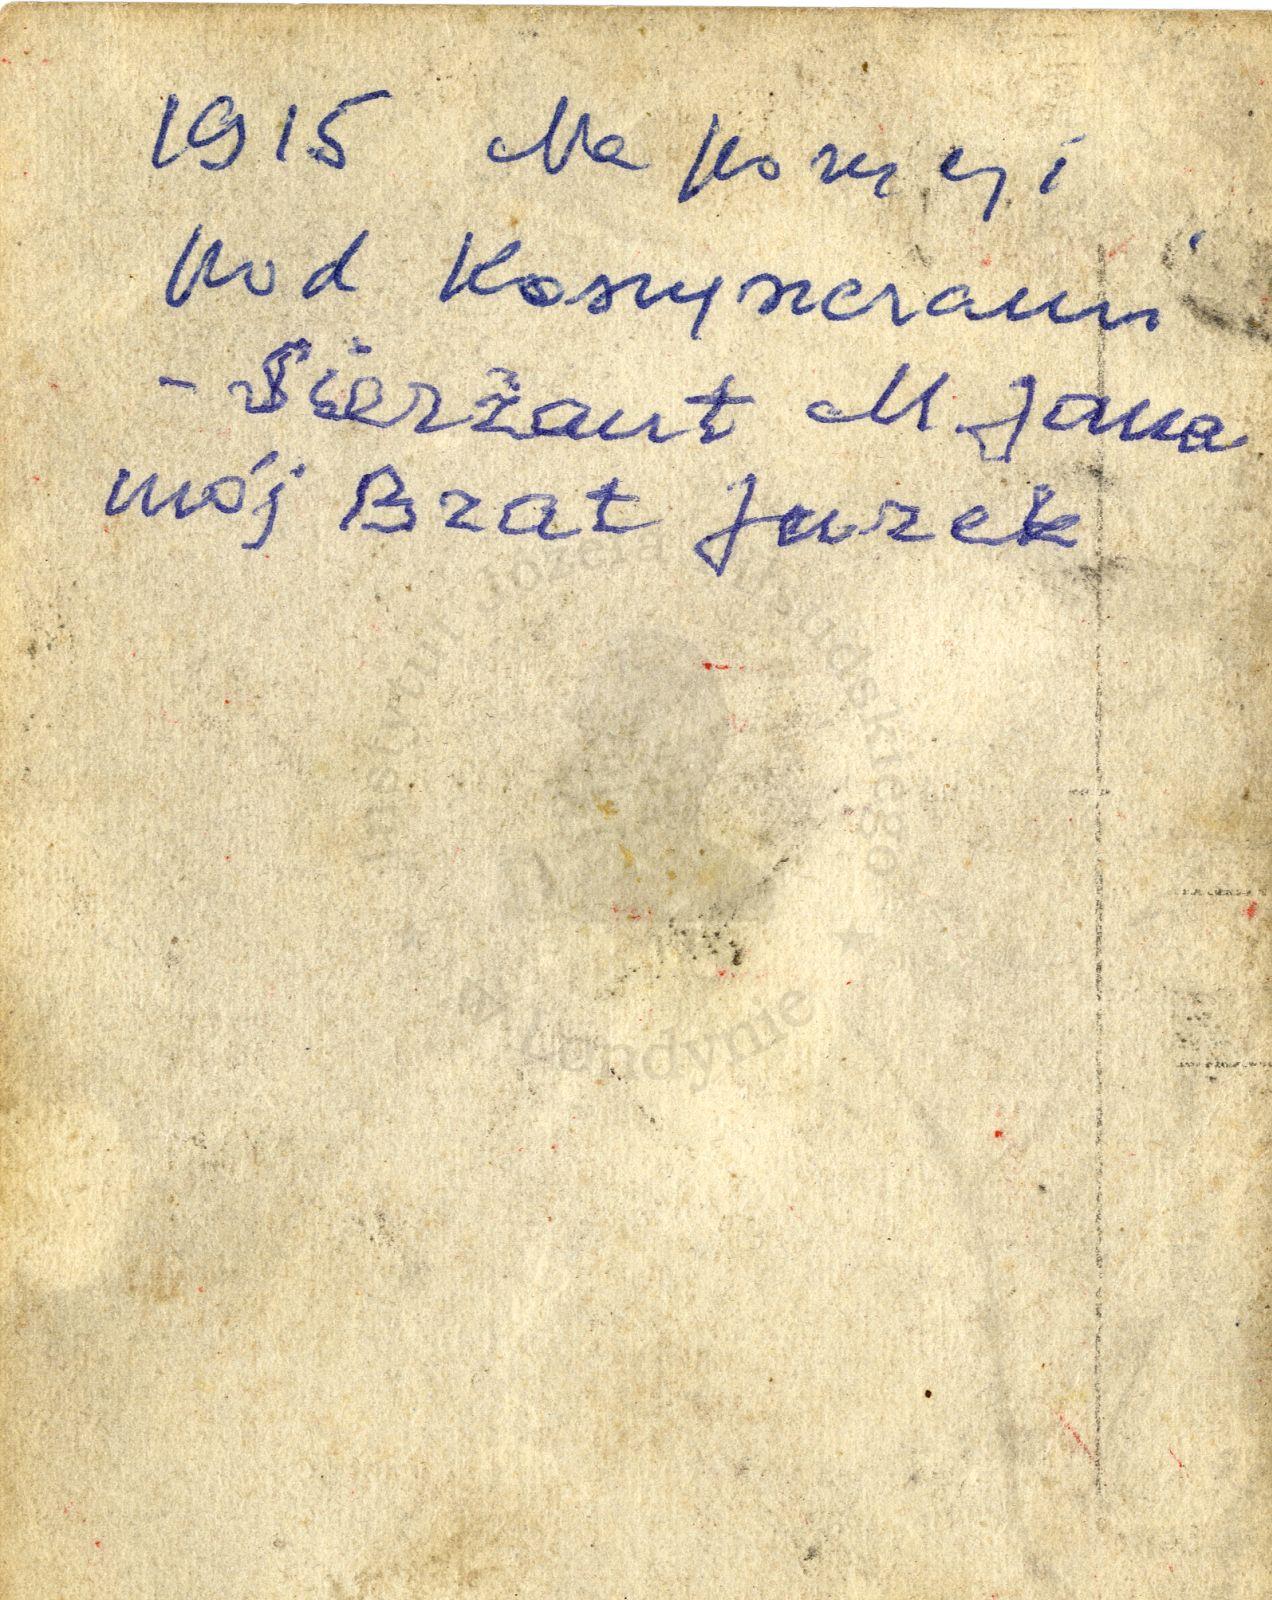 1915 Na pozycji
pod Koszyszczami
- Sierżant M.
mój Brat Jurek
Instytut Józefa Piłsudskiego
w Londynie